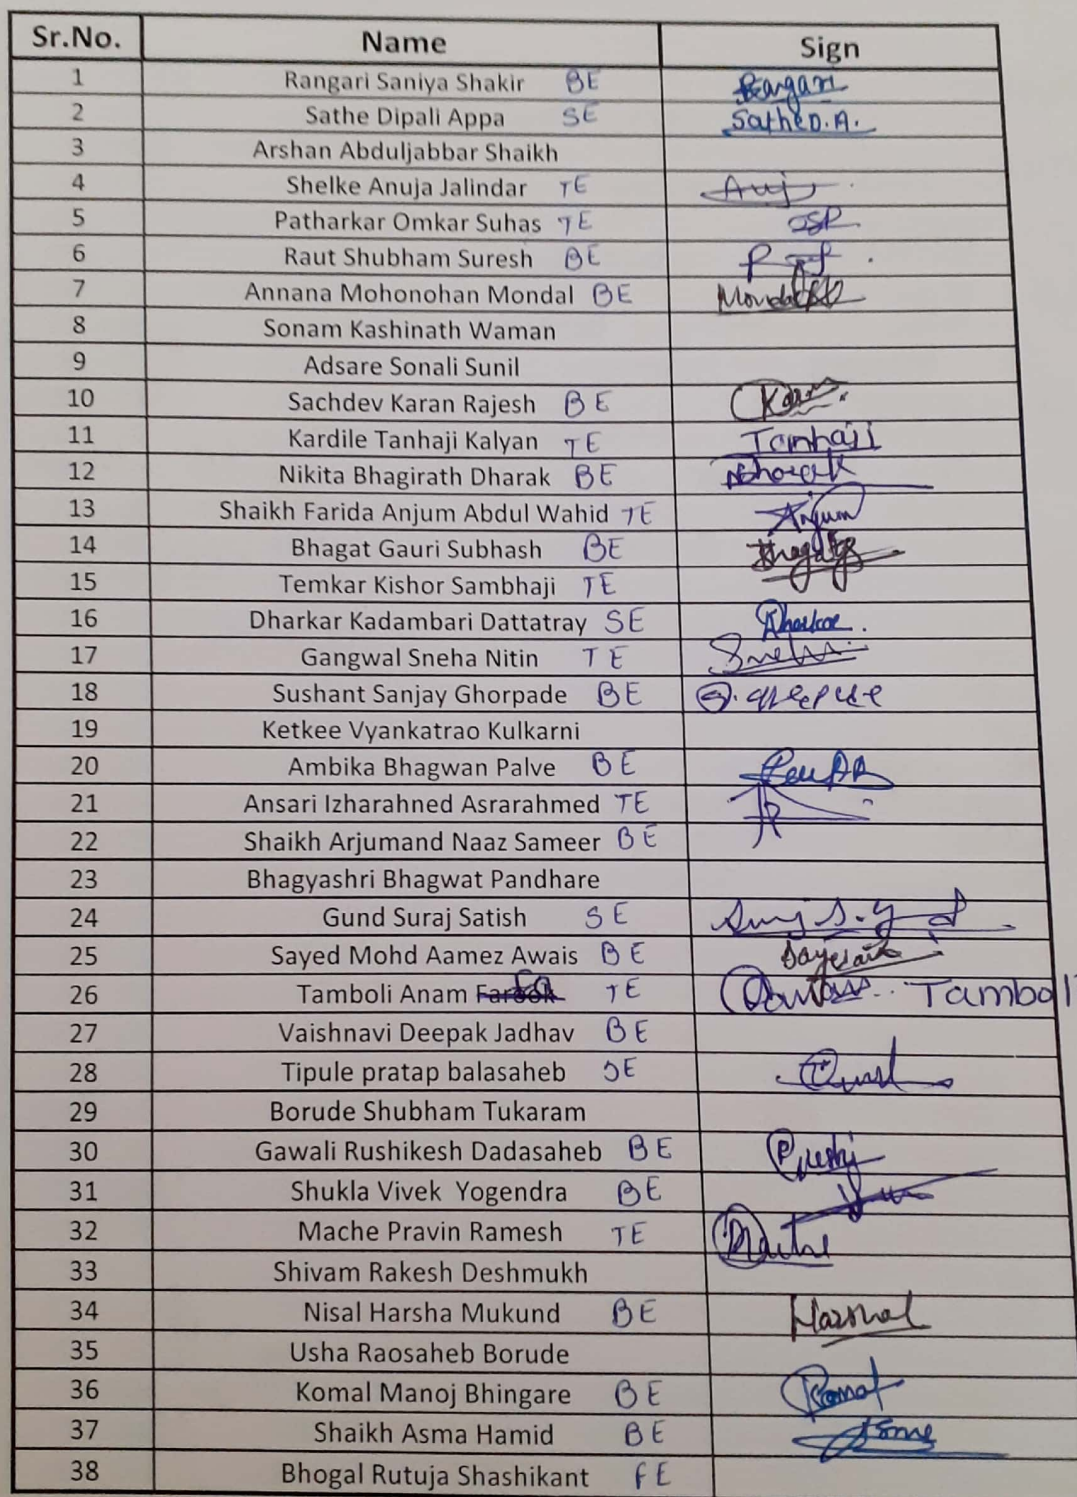 Sr.No. Name Sign
1 Rangari Saniya Shakir BE Rangari
2 Sathe Dipali Appa SE Sathe D.A.
3 Arshan Abduljabbar Shaikh
4 Shelke Anuja Jalindar TE Anuj
5 Patharkar Omkar Suhas TE OSP
6 Raut Shubham Suresh BE
7 Annana Mohonohan Mondal BE Mondal
8 Sonam Kashinath Waman
9 Adsare Sonali Sunil
10 Sachdev Karan Rajesh BE Karan
11 Kardile Tanhaji Kalyan TE Tanhaji
12 Nikita Bhagirath Dharak BE Dharak
13 Shaikh Farida Anjum Abdul Wahid TE Anjum
14 Bhagat Gauri Subhash BE
15 Temkar Kishor Sambhaji TE
16 Dharkar Kadambari Dattatray SE Dharkar
17 Gangwal Sneha Nitin TE Sneha
18 Sushant Sanjay Ghorpade BE
19 Ketkee Vyankatrao Kulkarni
20 Ambika Bhagwan Palve BE
21 Ansari Izharahned Asrarahmed TE
22 Shaikh Arjumand Naaz Sameer BE
23 Bhagyashri Bhagwat Pandhare
24 Gund Suraj Satish SE
25 Sayed Mohd Aamez Awais BE
26 Tamboli Anam Farook TE Tamboli
27 Vaishnavi Deepak Jadhav BE
28 Tipule pratap balasaheb SE
29 Borude Shubham Tukaram
30 Gawali Rushikesh Dadasaheb BE Rushi
31 Shukla Vivek Yogendra BE
32 Mache Pravin Ramesh TE
33 Shivam Rakesh Deshmukh
34 Nisal Harsha Mukund BE Harshal
35 Usha Raosaheb Borude
36 Komal Manoj Bhingare BE Komal
37 Shaikh Asma Hamid BE Asma
38 Bhogal Rutuja Shashikant FE